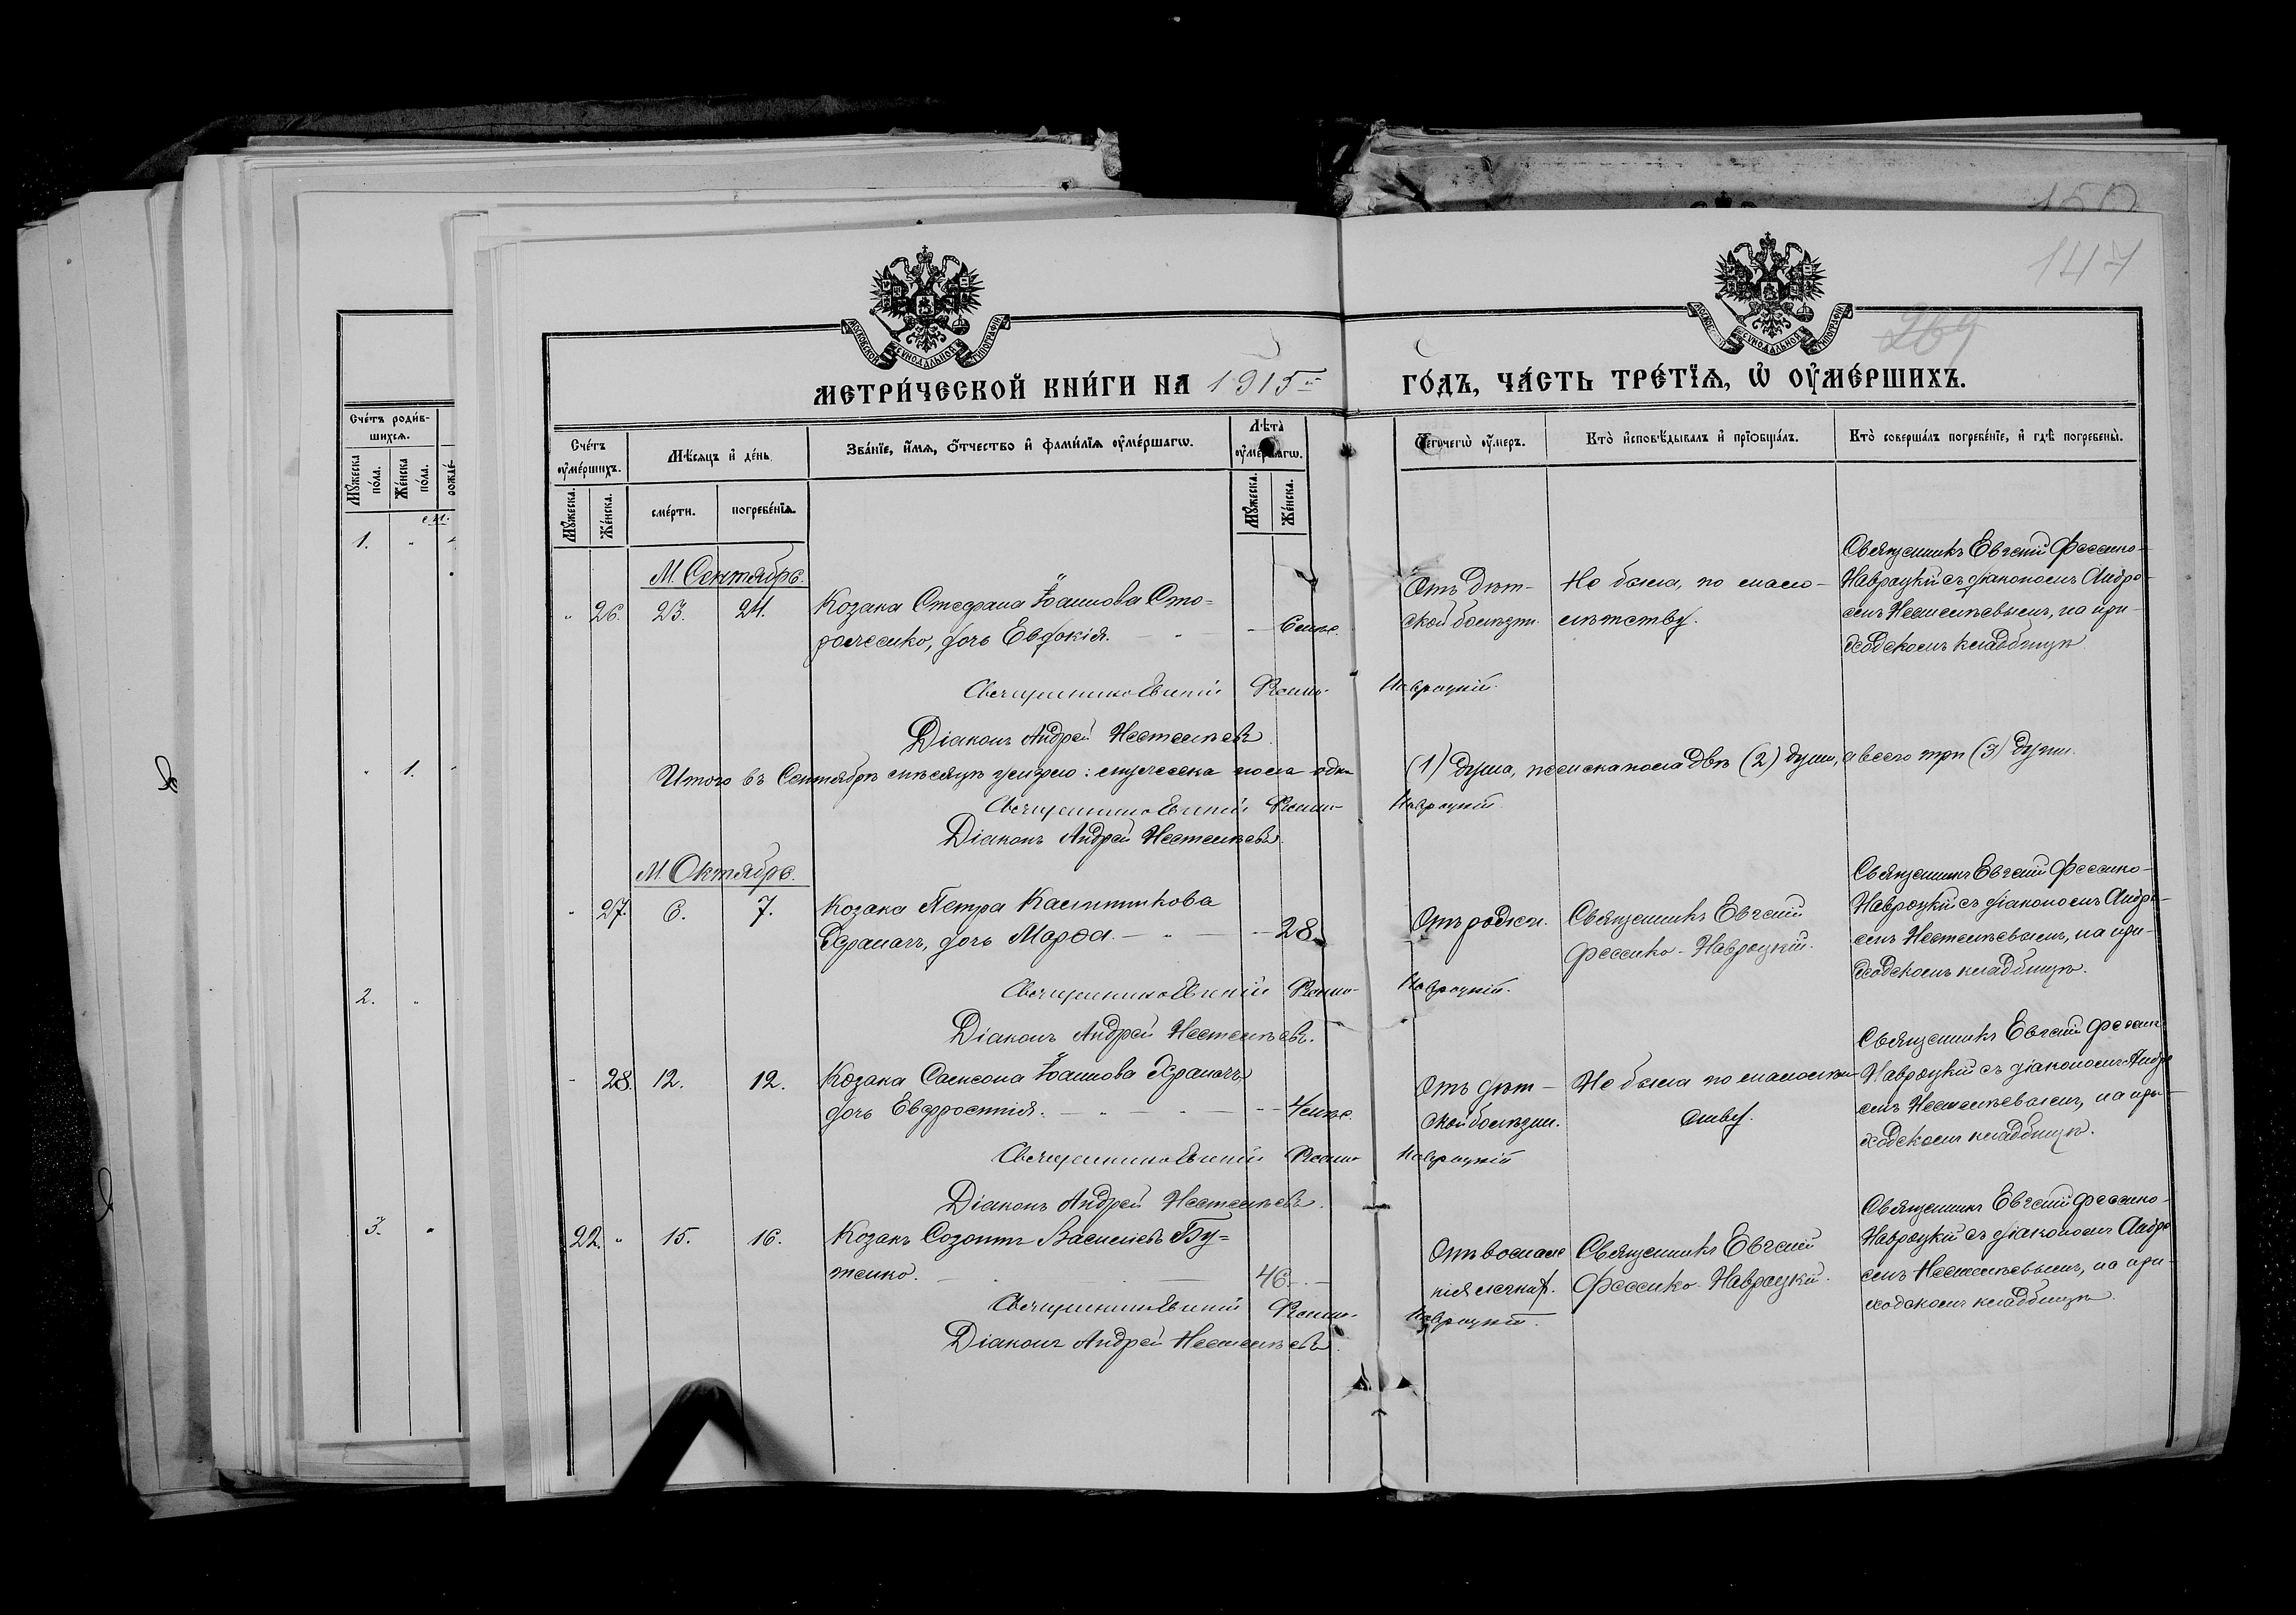 150
147
269
МЕТРИ́ЧЕСКОЙ КНИ́ГИ НА 1915й ГО́ДЪ, ЧА́СТЬ ТРЕ́ТЇѦ, Ѡ҆ ОУ҆МЕ́РШИХЪ.
МОСКОВСКОЙ СѴНОДАЛЬНОЙ ТИПОГРАФІИ
СѴНОДАЛЬНОЙ ТИПОГРАФІИ
Сче́тъ роди́в-
шихсѧ.
Мꙋ́жеска по́ла.
Же́нска по́ла.
рожде́-
1.
1.
2.
3.
Сче́тъ оу҆ме́ршихъ.
Мꙋ́жеска.
Же́нска.
Мѣ́сѧцъ и҆ де́нь
сме́рти.
погребе́нїѧ.
Зва́нїе, и҆́мѧ, ѻ҆́тчество и҆ фами́лїѧ оу҆ме́ршагѡ.
Лѣ́та оу҆ме́ршагѡ.
Мꙋ́жеска.
Же́нска.
Ѿчегѡ̀ оу҆́меръ.
Кто̀ и҆сповѣ́дывалъ и҆ прїѻбща́лъ.
Кто̀ соверша́лъ погребе́нїе, и҆ гдѣ̀ погребены̀.
М. Сентябрь.
" 26. 23. 24. Козака Стефана Іоаннова Сто=
роженко, дочь Евдокія. 6 мѣс.
Отъ дѣт-
ской болѣзн.
Не была, по мало-
лѣтству.
Священникъ Евгеній Фесенко-
Навроцкій съ діакономъ Андре-
емъ Нестелѣевымъ, на при-
ходскомъ кладбищѣ
Священникъ Евгеній Фесенко-Навроцкій.
Діаконъ Андрей
Итого въ Сентябрѣ мѣсяцѣ умерло: мужеска пола одна (1) душа, женска пола двѣ (2) души, а всего три (3) души.
Священникъ Евгеній Фесенко-Навроцкій.
Діаконъ Андрей
М. Октябрь.
" 27. 6. 7. Козака Петра Каллиникова
Храпачъ, дочь Марѳа. 28.
Отъ родовъ.
Священникъ Евгеній
Фесенко-Навроцкій.
Священникъ Евгеній Фесенко-
Навроцкій съ діакономъ Андре-
емъ Нестелѣевымъ, на при-
ходскомъ кладбищѣ.
Священникъ Евгеній Фесенко-Навроцкій.
Діаконъ Андрей
" 28. 12. 12. Козака Самсона Іоаннова Храпачъ
дочь Евфросинія. 4 мѣс.
Отъ дѣт-
ской болѣзни.
Не была по малолѣт-
ству.
Священникъ Евгеній Фесенко
Навроцкій съ діакономъ Андре
емъ Нестелѣевымъ, на при-
ходскомъ кладбищѣ.
Священникъ Евгеній Фесенко-Навроцкій
Діаконъ Андрей
22. " 15. 16. Козакъ Созонтъ Васильевъ Бу=
тенко. 46.
Отъ воспале
нія легких.
Священникъ Евгеній
Фесенко-Навроцкій.
Священникъ Евгеній Фесенко-
Навроцкій съ діакономъ Андре
емъ Нестелѣевымъ, на при-
ходскомъ кладбищѣ.
Священникъ Евгеній Фесенко-Навроцкій.
Діаконъ Андрей